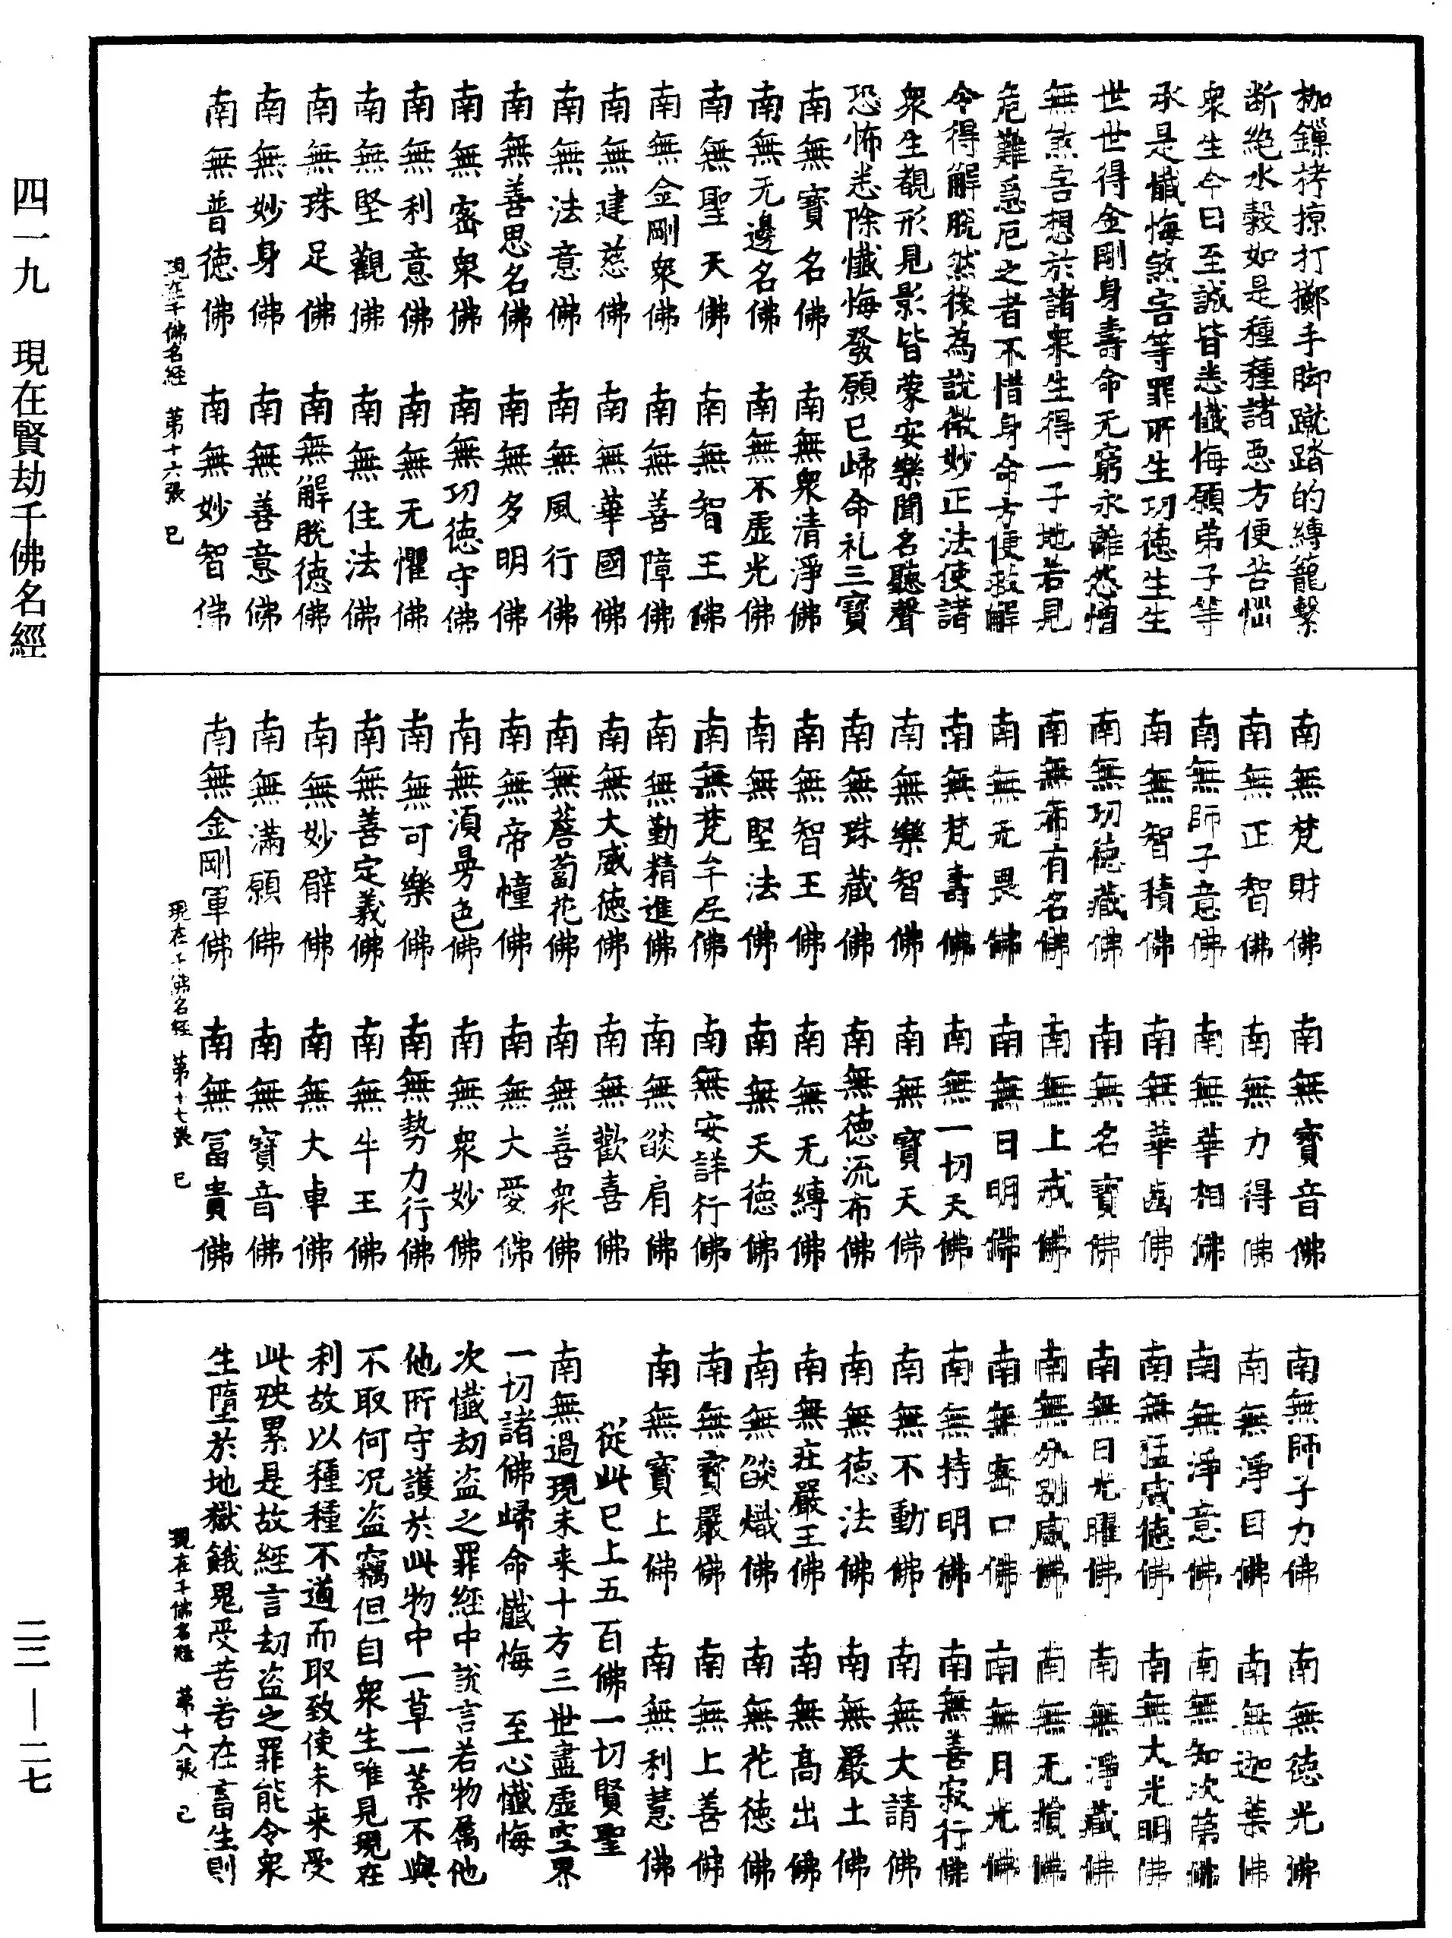 枷鏁拷掠打擲手脚蹴踏的縛籠繫
断絶水穀如是種種諸惡方便苦惱
衆生今日至誠皆悉懺悔願弟子等
承是懺悔煞害等罪所生功德生生
世世得金剛身壽命无窮永離怨憎
無煞害想於諸衆生得一子地若見
危難急厄之者不惜身命方便救解
令得解脫然後為說微妙正法使諸
衆生覩形見影皆蒙安樂聞名聽聲
恐怖悉除懺悔發願已歸命礼三寶
南無寶名佛 南無衆清淨佛
南無无邊名佛 南無不虛光佛
南無聖天佛 南無智王佛
南無金剛衆佛 南無善障佛
南無建慈佛 南無華國佛
南無法意佛 南無風行佛
南無善思名佛 南無多明佛
南無密衆佛 南無功德守佛
南無利意佛 南無无懼佛
南無堅觀佛 南無住法佛
南無珠足佛 南無解脫德佛
南無妙身佛 南無善意佛
南無普德佛 南無妙智佛
現在千佛名経 第十六張 巳
南無梵財佛 南無寶音佛
南無正智佛 南無力得佛
南無師子意佛 南無華相佛
南無智積佛 南無華齒佛
南無功德藏佛 南無名寶佛
南無希有名佛 南無上戒佛
南無无畏佛 南無日明佛
南無梵壽佛 南無一切天佛
南無樂智佛 南無寶天佛
南無珠藏佛 南無德流布佛
南無智王佛 南無无縛佛
南無堅法佛 南無天德佛
南無梵牟尼佛 南無安詳行佛
南無勤精進佛 南無燄肩佛
南無大威德佛 南無歡喜佛
南無薝蔔花佛 南無善衆佛
南無帝幢佛 南無大愛佛
南無湏曼色佛 南無衆妙佛
南無可樂佛 南無勢力行佛
南無善定義佛 南無牛王佛
南無妙臂佛 南無大車佛
南無滿願佛 南無寶音佛
南無金剛軍佛 南無冨貴佛
現在千佛名経 第十七張 巳
南無師子力佛 南無德光佛
南無淨目佛 南無迦葉佛
南無淨意佛 南無知次第佛
南無猛威德佛 南無大光明佛
南無日光曜佛 南無淨藏佛
南無分別威佛 南無无損佛
南無密口佛 南無月光佛
南無持明佛 南無善寂行佛
南無不動佛 南無大請佛
南無德法佛 南無嚴土佛
南無莊嚴王佛 南無高出佛
南無燄熾佛 南無花德佛
南無寶嚴佛 南無上善佛
南無寶上佛 南無利慧佛
從此已上五百佛一切賢聖
南無過現未来十方三世盡虛空界
一切諸佛歸命懺悔 至心懺悔
次懺劫盜之罪経中說言若物属他
他所守護於此物中一草一葉不與
不取何况盜竊但自衆生唯見現在
利故以種種不道而取致使未来受
此殃累是故經言劫盜之罪能令衆
生墮於地獄餓鬼受苦若在畜生則
現在千佛名経 第十八張 巳
四一九 現在賢劫千佛名經
二二—二七